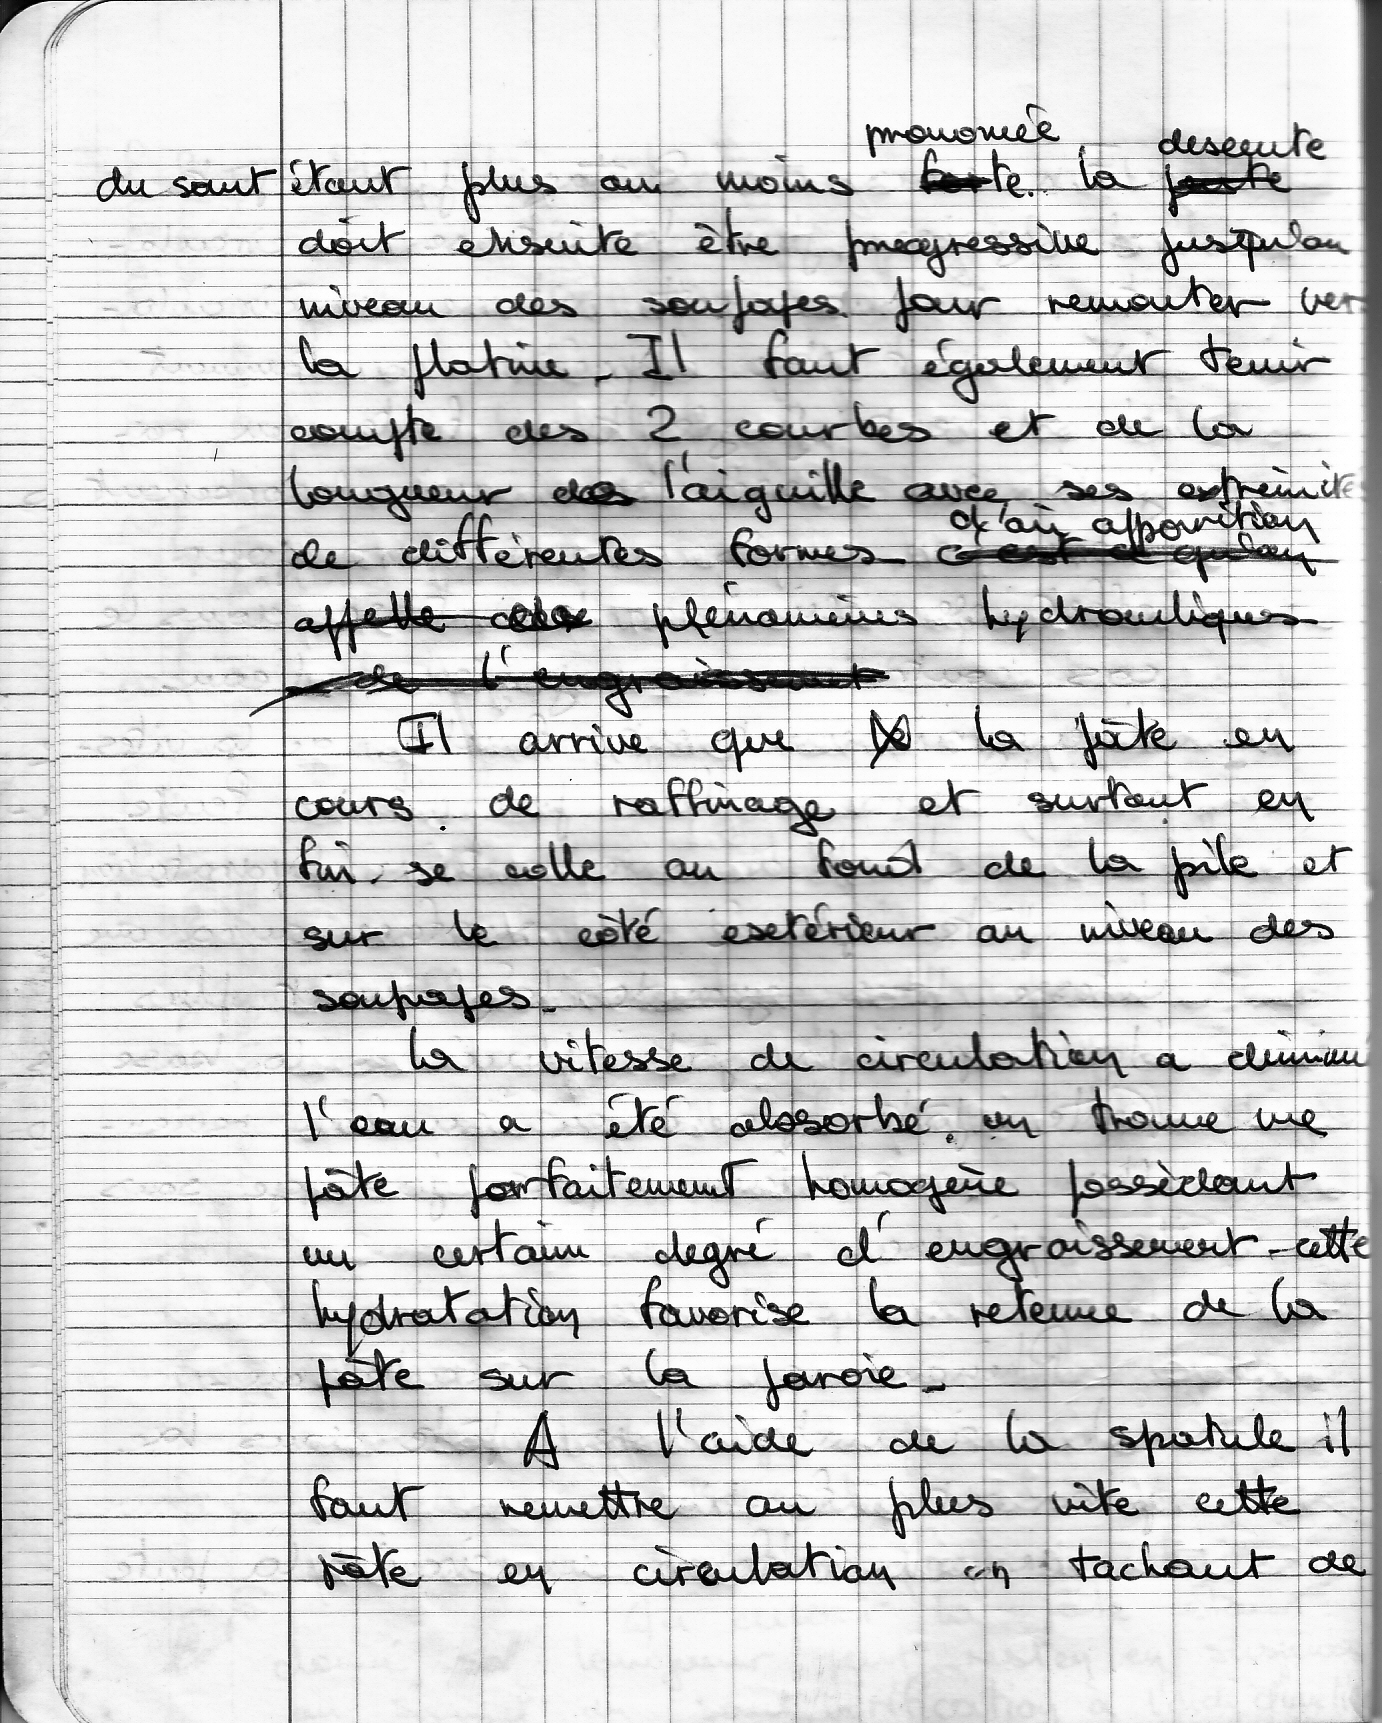 prononcée descente
du saut étant plus ou moins forte. la pente
doit ensuite être progressive jusqu'au
niveau des soupapes pour remonter ver
la platine. Il faut également tenir
compte des 2 courbes et de la
longueur de l'aiguille avec ses extrémités
d'où apparition
de différentes formes c'est ce qu'on
appelle cela phénomènes hydrauliques
de l'engraissement
Il arrive que la pâte en
cours de raffinage et surtout en
fin se colle au fond de la pile et
sur le côté esetérieur au niveau des
soupapes.
la vitesse de circulation a diminu
l'eau a été absorbé. on trouve une
pâte parfaitement homogène possèdant
un certain degré d'engraissement - cette
hydratation favorise la retenue de la
pâte sur la paroie -
A l'aide de la spatule il
faut remettre au plus vite cette
pâte en circulation en tachant de